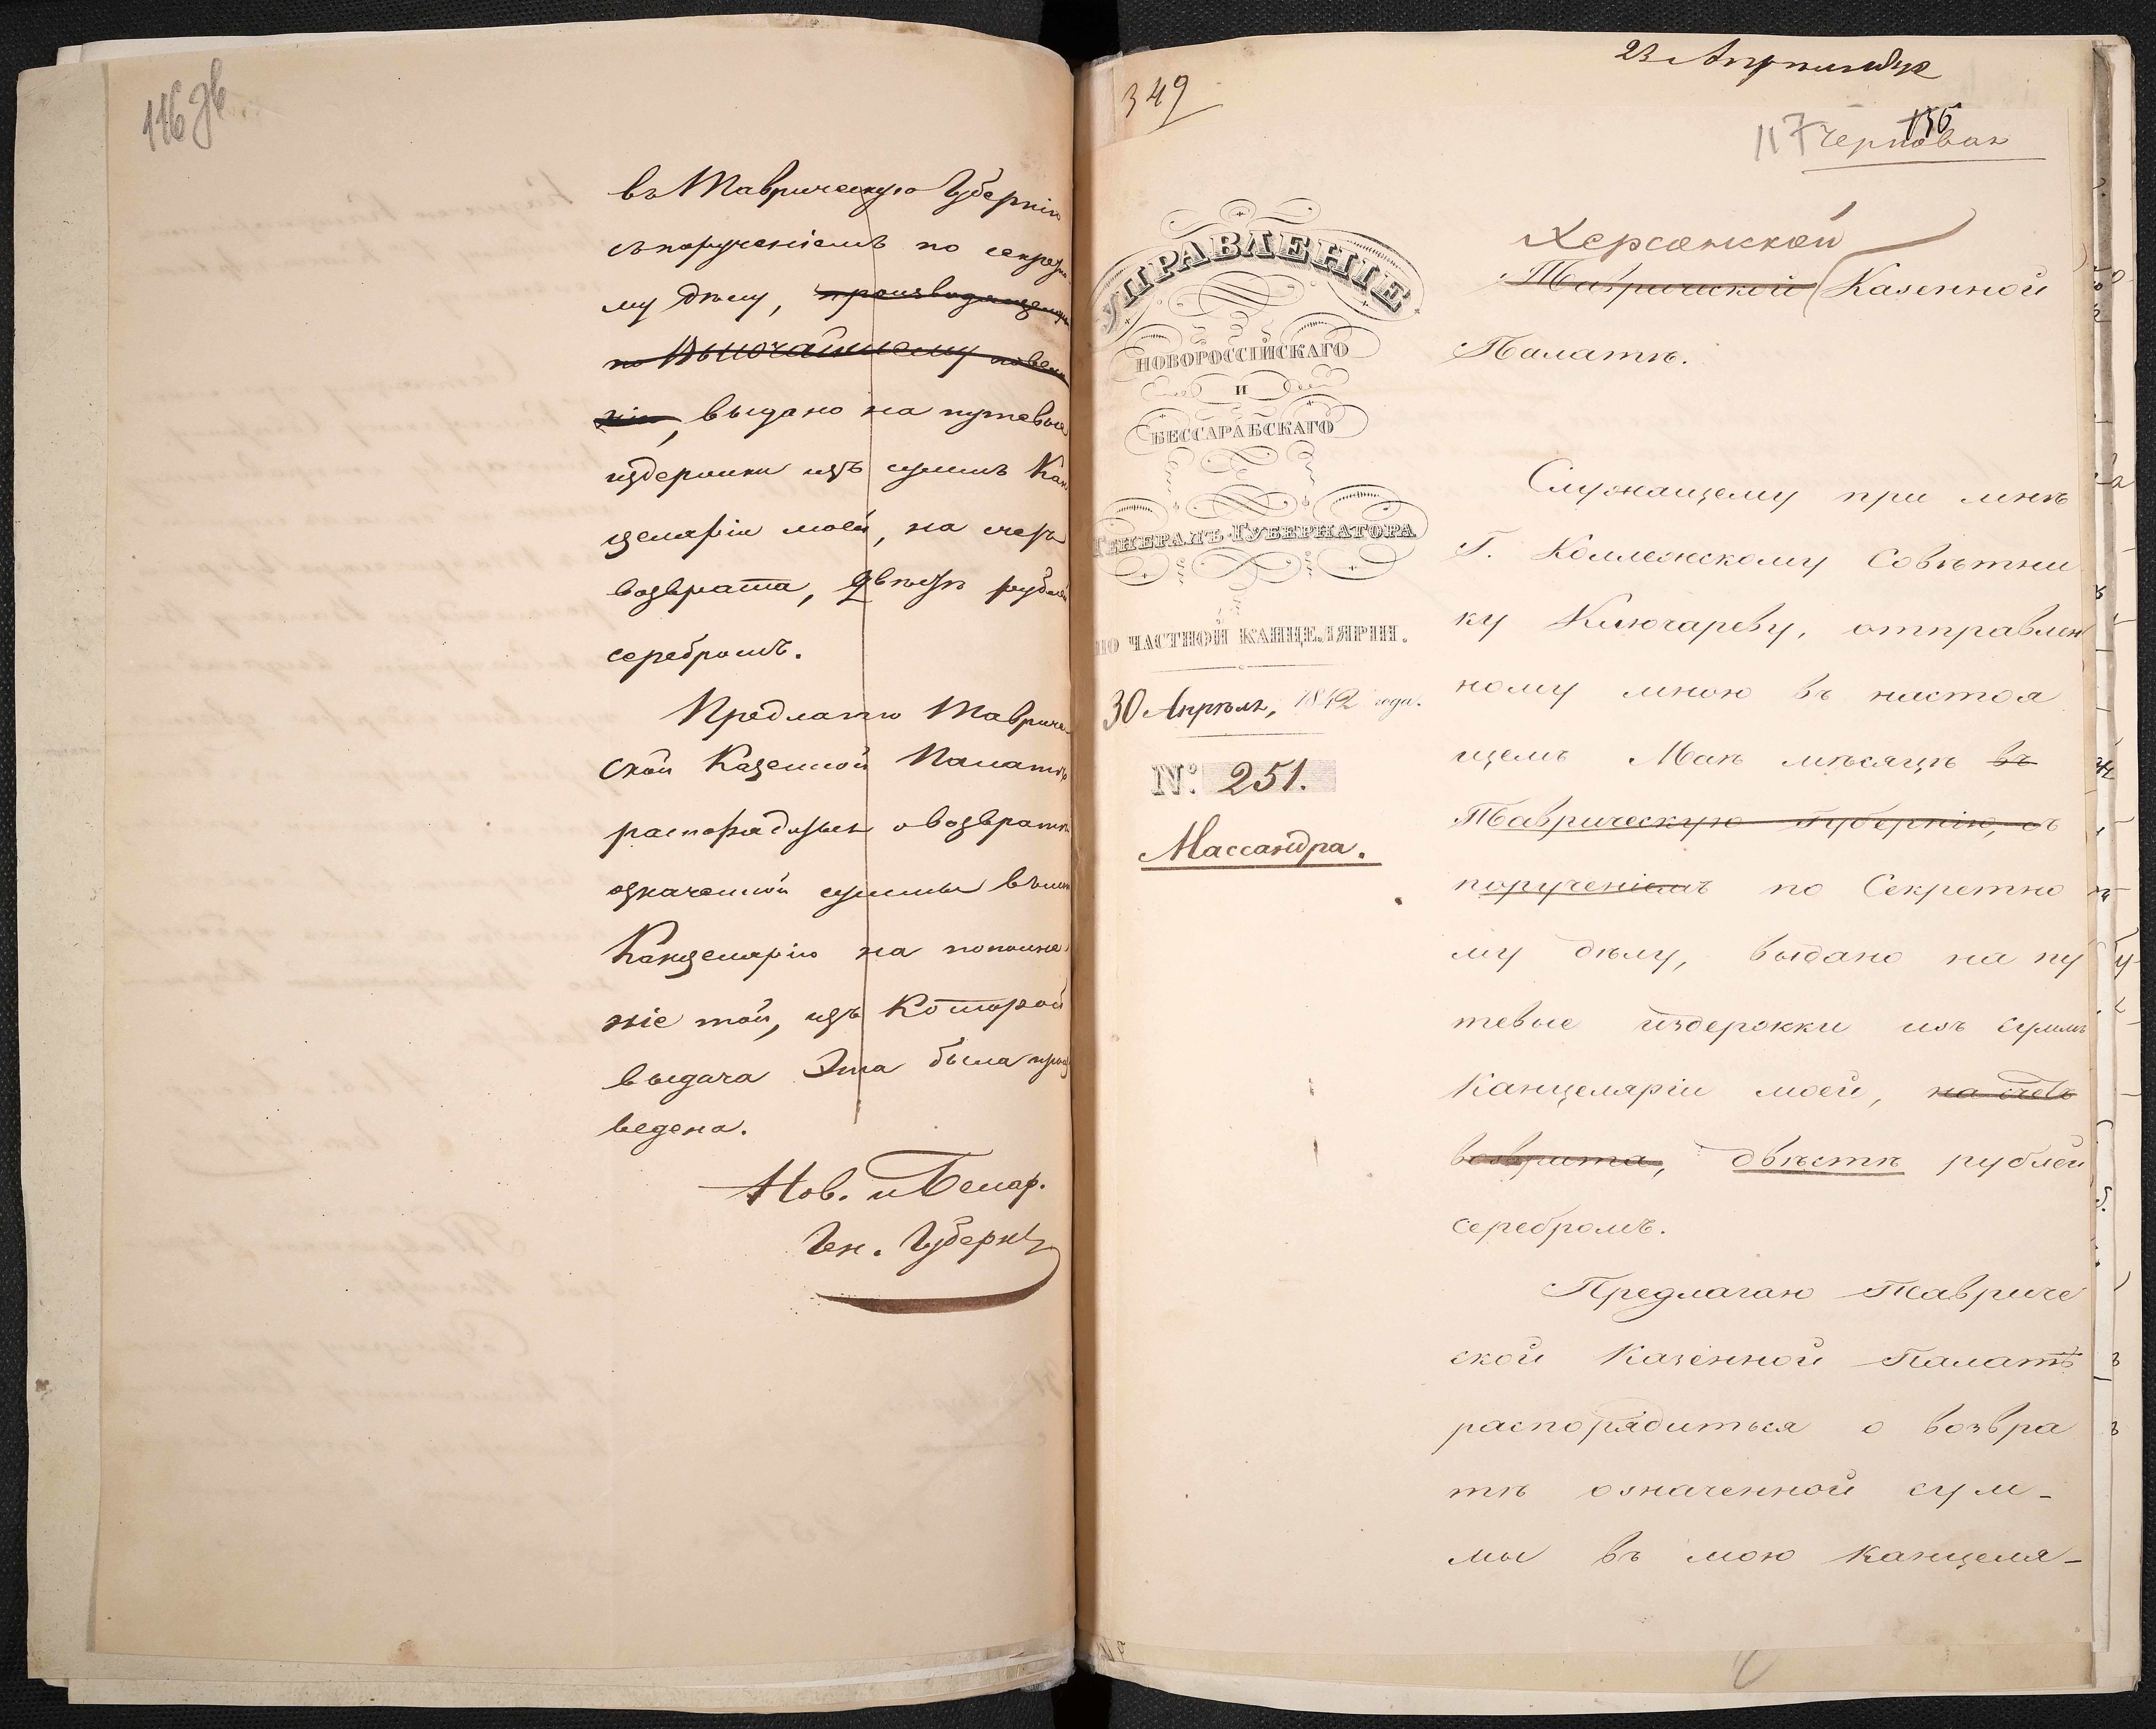 116 об
въ Таврическую Губернію
съ порученіемъ по секретно
му дѣлу, производящемуся
по Высочайшему повелѣ
нію, выдано на путевые
издержки изъ суммъ Кан
целяріи моей, на счетъ
возврата, двѣсти рублей
серебромъ.
Предлагаю Тавриче-
ской Казенной Палатѣ
распорядиться о возвратѣ
означенной суммы въ мою
Канцелярію на пополне-
ніе той, изъ Которой
выдача Эта была произ
ведена.
Нов. и Бессар.
Ген. Губерн
349
23
156
117 Черновая
УПРАВЛЕНІЕ
НОВОРОССІЙСКАГО
И
БЕССАРАБСКАГО
ГЕНЕРАЛЪ-ГУБЕРНАТОРА
ПО ЧАСТНОЙ КАНЦЕЛЯРІИ.
30 Апрѣля, 1842 года.
№: 251.
Массандра.
Херсонской
Таврической Казенной
Палатѣ.
Служащему при мнѣ
Г. Коллежскому Совѣтни
ку Ключареву, отправлен
ному мною въ настоя
щемъ Маѣ мѣсяцѣ въ
Таврическую Губернію, съ
порученіемъ по Секретно
му дѣлу, выдано на пу
тевые издержки изъ суммъ
Канцеляріи моей, на счетъ
возврата, двѣсти рублей
серебромъ.
Предлагаю Тавриче
ской Казенной Палатѣ
распорядиться о возвра
тѣ означенной сум-
мы въ мою Канцеля-